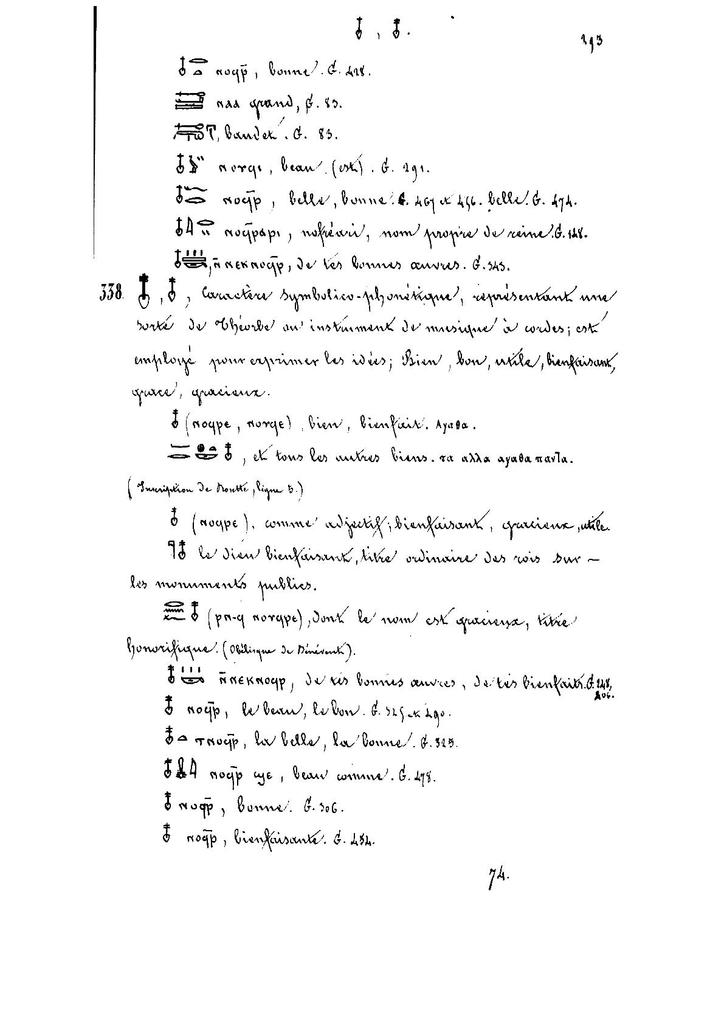 𓄤, 𓄤.
293
𓄤 ⲛⲟϥⲣ̄, bonne. G. 428.
ⲛⲁⲁ grand, G. 83.
, baudet. G. 83.
𓄤 ⲛⲟⲩϥⲓ, beau (est). G. 291.
𓄤 ⲛⲟϥⲣ̄, belle, bonne G. 467 et 456. belle G. 474.
𓄤 ⲛⲟϥⲣⲁⲣⲓ, nofréari, nom propre de reine. G. 128.
𓄤, ⲛ̄ⲛⲉⲕⲛⲟϥⲣ̄, de tes bonnes œuvres. G. 343.
338 𓄤, 𓄤, Caractère symbolico-phonétique, représentant une
sorte de Théorbe ou instrument de musique à cordes; est
employé pour exprimer les idées; Bien, bon, utile, bienfaisant,
grace, gracieux.
𓄤 (ⲛⲟϥⲣⲉ, ⲛⲟⲩϥⲉ) bien, bienfait. αγαθα.
𓄤, et tous les autres biens. τα αλλα αγαθα παντα.
(Inscription de Rosette, ligne 5.)
𓄤 (ⲛⲟϥⲣⲉ). comme adjectif; bienfaisant, gracieux, utile.
𓊹𓄤 le dieu bienfaisant, titre ordinaire des rois sur
les monuments publics.
𓄤 (ⲣⲛ-ϥ ⲛⲟⲩϥⲣⲉ), dont le nom est gracieux, titre
honorifique. (Obélisque de Bénévent).
𓄤 ⲛ̄ⲛⲉⲕⲛⲟϥⲣ, de tes bonnes œuvres, de tes bienfaits. G. 248,
𓄤 ⲛⲟϥⲣ̄, le beau, le bon. G. 325 et 490.
𓄤𓏏 ⲧⲛⲟϥⲣ̄, la belle, la bonne. G. 323.
𓄤 ⲛⲟϥⲣ̄ ϣⲉ, beau comme. G. 478.
𓄤 ⲛⲟϥⲣ̄, bonne. G. 306.
𓄤 ⲛⲟϥⲣ̄, bienfaisante. G. 434.
74.